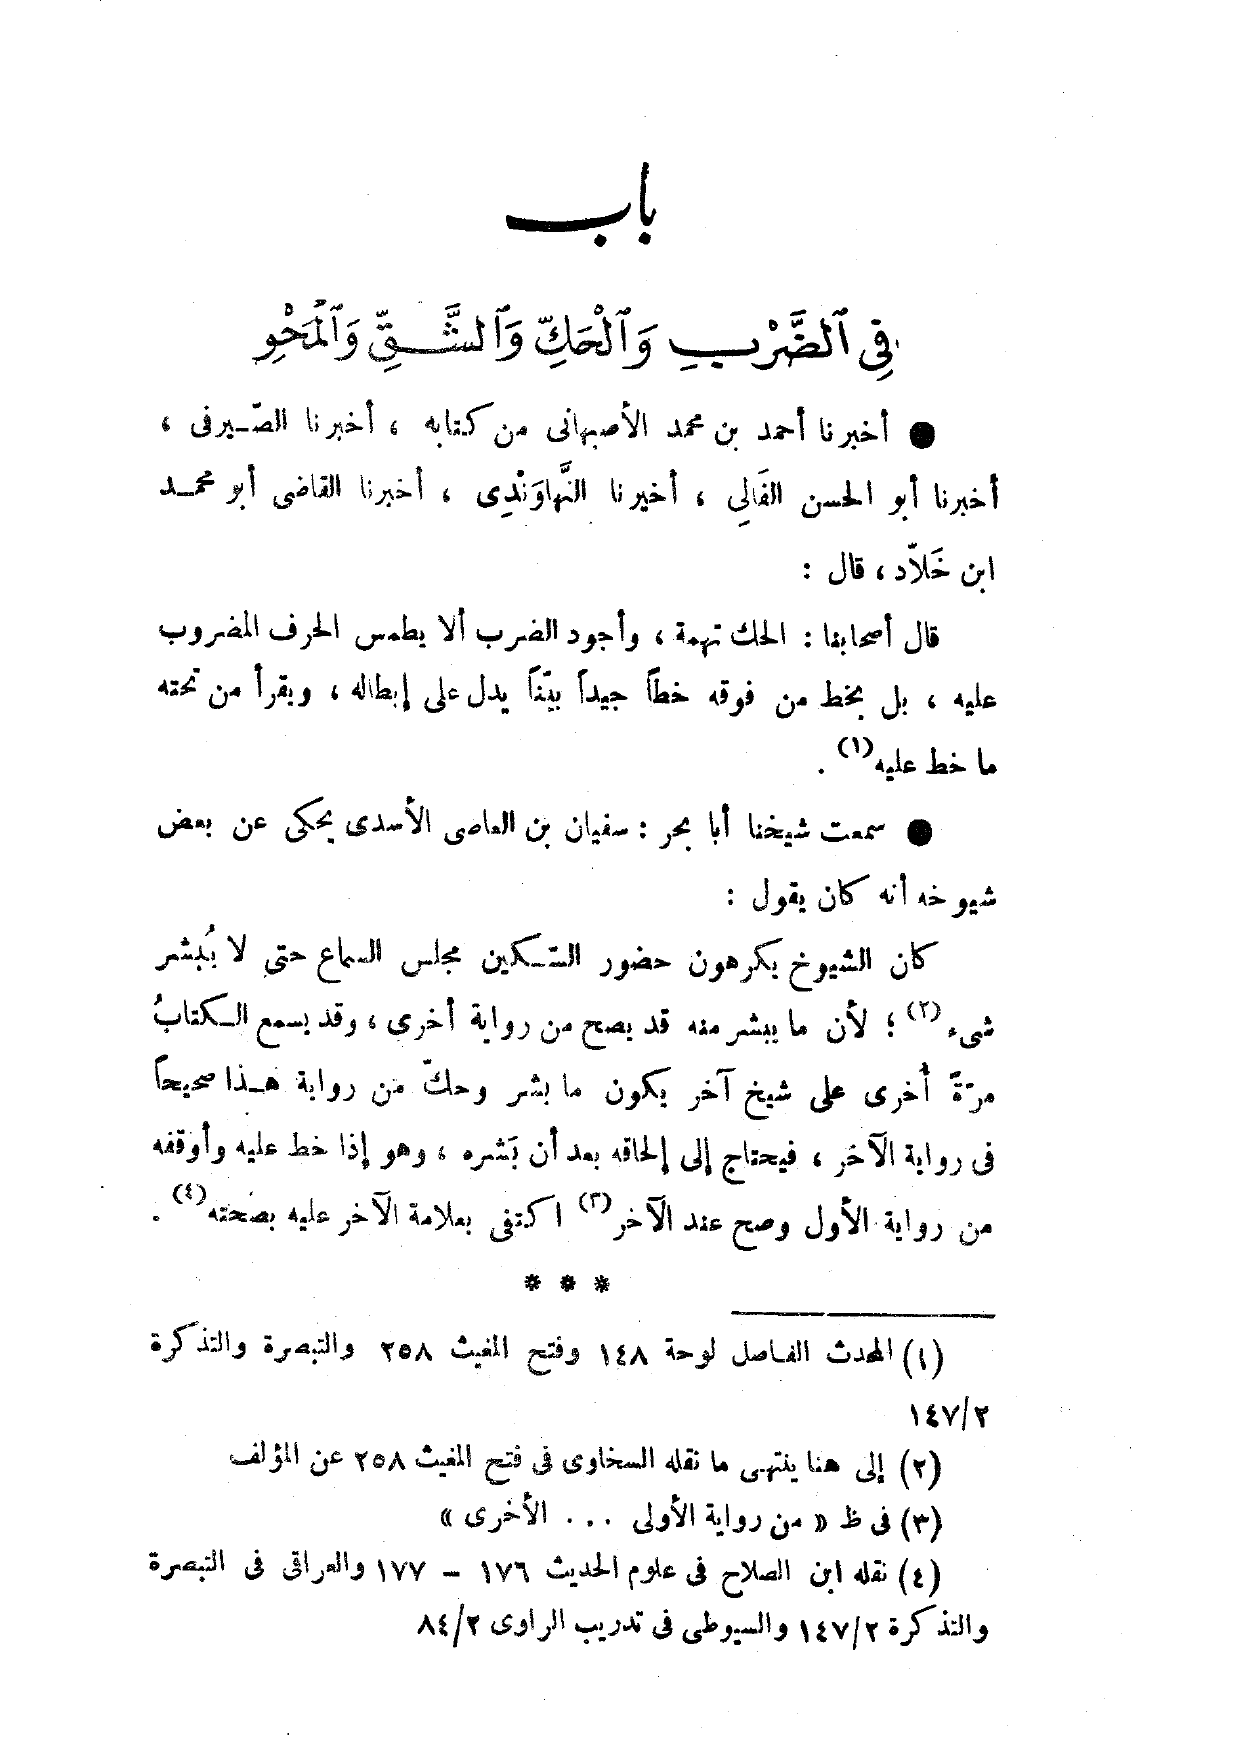 باب
فِي ٱلضَّرْبِ وَٱلْحَكِّ وَٱلشَّقِّ وَٱلْمَحْوِ
● أخبرنا أحمد بن محمد الأصبهانى من كتابه ، أخبرنا الصّيرفى ،
أخبرنا أبو الحسن الفَالِي ، أخبرنا النَّهاوَنْدِى ، أخبرنا القاضى أبو محمد
ابن خَلاّد ، قال :
قال أصحابنا : الحك تهمة ، وأجود الضرب ألا يطمس الحرف المضروب
عليه ، بل يخط من فوقه خطاً جيداً بيّناً يدل على إبطاله ، ويقرأ من تحته
ما خط عليه(١) .
● سمعت شيخنا أبا بحر : سفيان بن العاصى الأسدى يحكى عن بعض
شيوخه أنه كان يقول :
كان الشيوخ يكرهون حضور السّكين مجلس السماع حتى لا يُبشر
شىء(٢) ؛ لأن ما يبشر منه قد يصح من رواية أخرى ، وقد يسمع الكتابُ
مرّةً أُخرى على شيخ آخر يكون ما بشر وحكّ من رواية هذا صحيحاً
فى رواية الآخر ، فيحتاج إلى إلحاقه بعد أن بَشره ، وهو إذا خط عليه وأوقفه
من رواية الأول وصح عند الآخر(٣) اكتفى بعلامة الآخر عليه بصحته(٤) .
* * *
(١) المحدث الفاصل لوحة ١٤٨ وفتح المغيث ٢٥٨ والتبصرة والتذكرة
١٤٧/٢
(٢) إلى هنا ينتهى ما نقله السخاوى فى فتح المغيث ٢٥٨ عن المؤلف
(٣) فى ظ « من رواية الأولى ... الأخرى »
(٤) نقله ابن الصلاح فى علوم الحديث ١٧٦ – ١٧٧ والعراقى فى التبصرة
والتذكرة ١٤٧/٢ والسيوطى فى تدريب الراوى ٨٤/٢